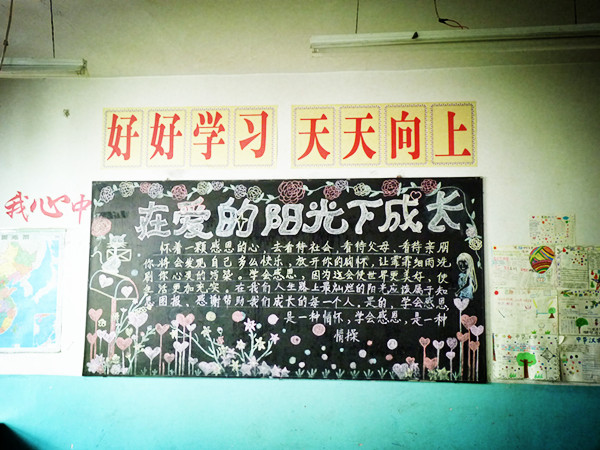 好好学习 天天向上
我心中
在爱的阳光下成长
怀着一颗感恩的心,去看待社会,看待父母,看待亲朋
你将会发现自己多么快乐,放开你的胸怀,让霏霏细雨洗
刷你心灵的污染。学会感恩,因为这会使世界更美好,使
生活更加充实。在我们人生路上最灿烂的阳光应该属于知
恩图报、感谢帮助我们成长的每一个人。是的,学会感恩
是一种情怀,学会感恩,是一种
情操